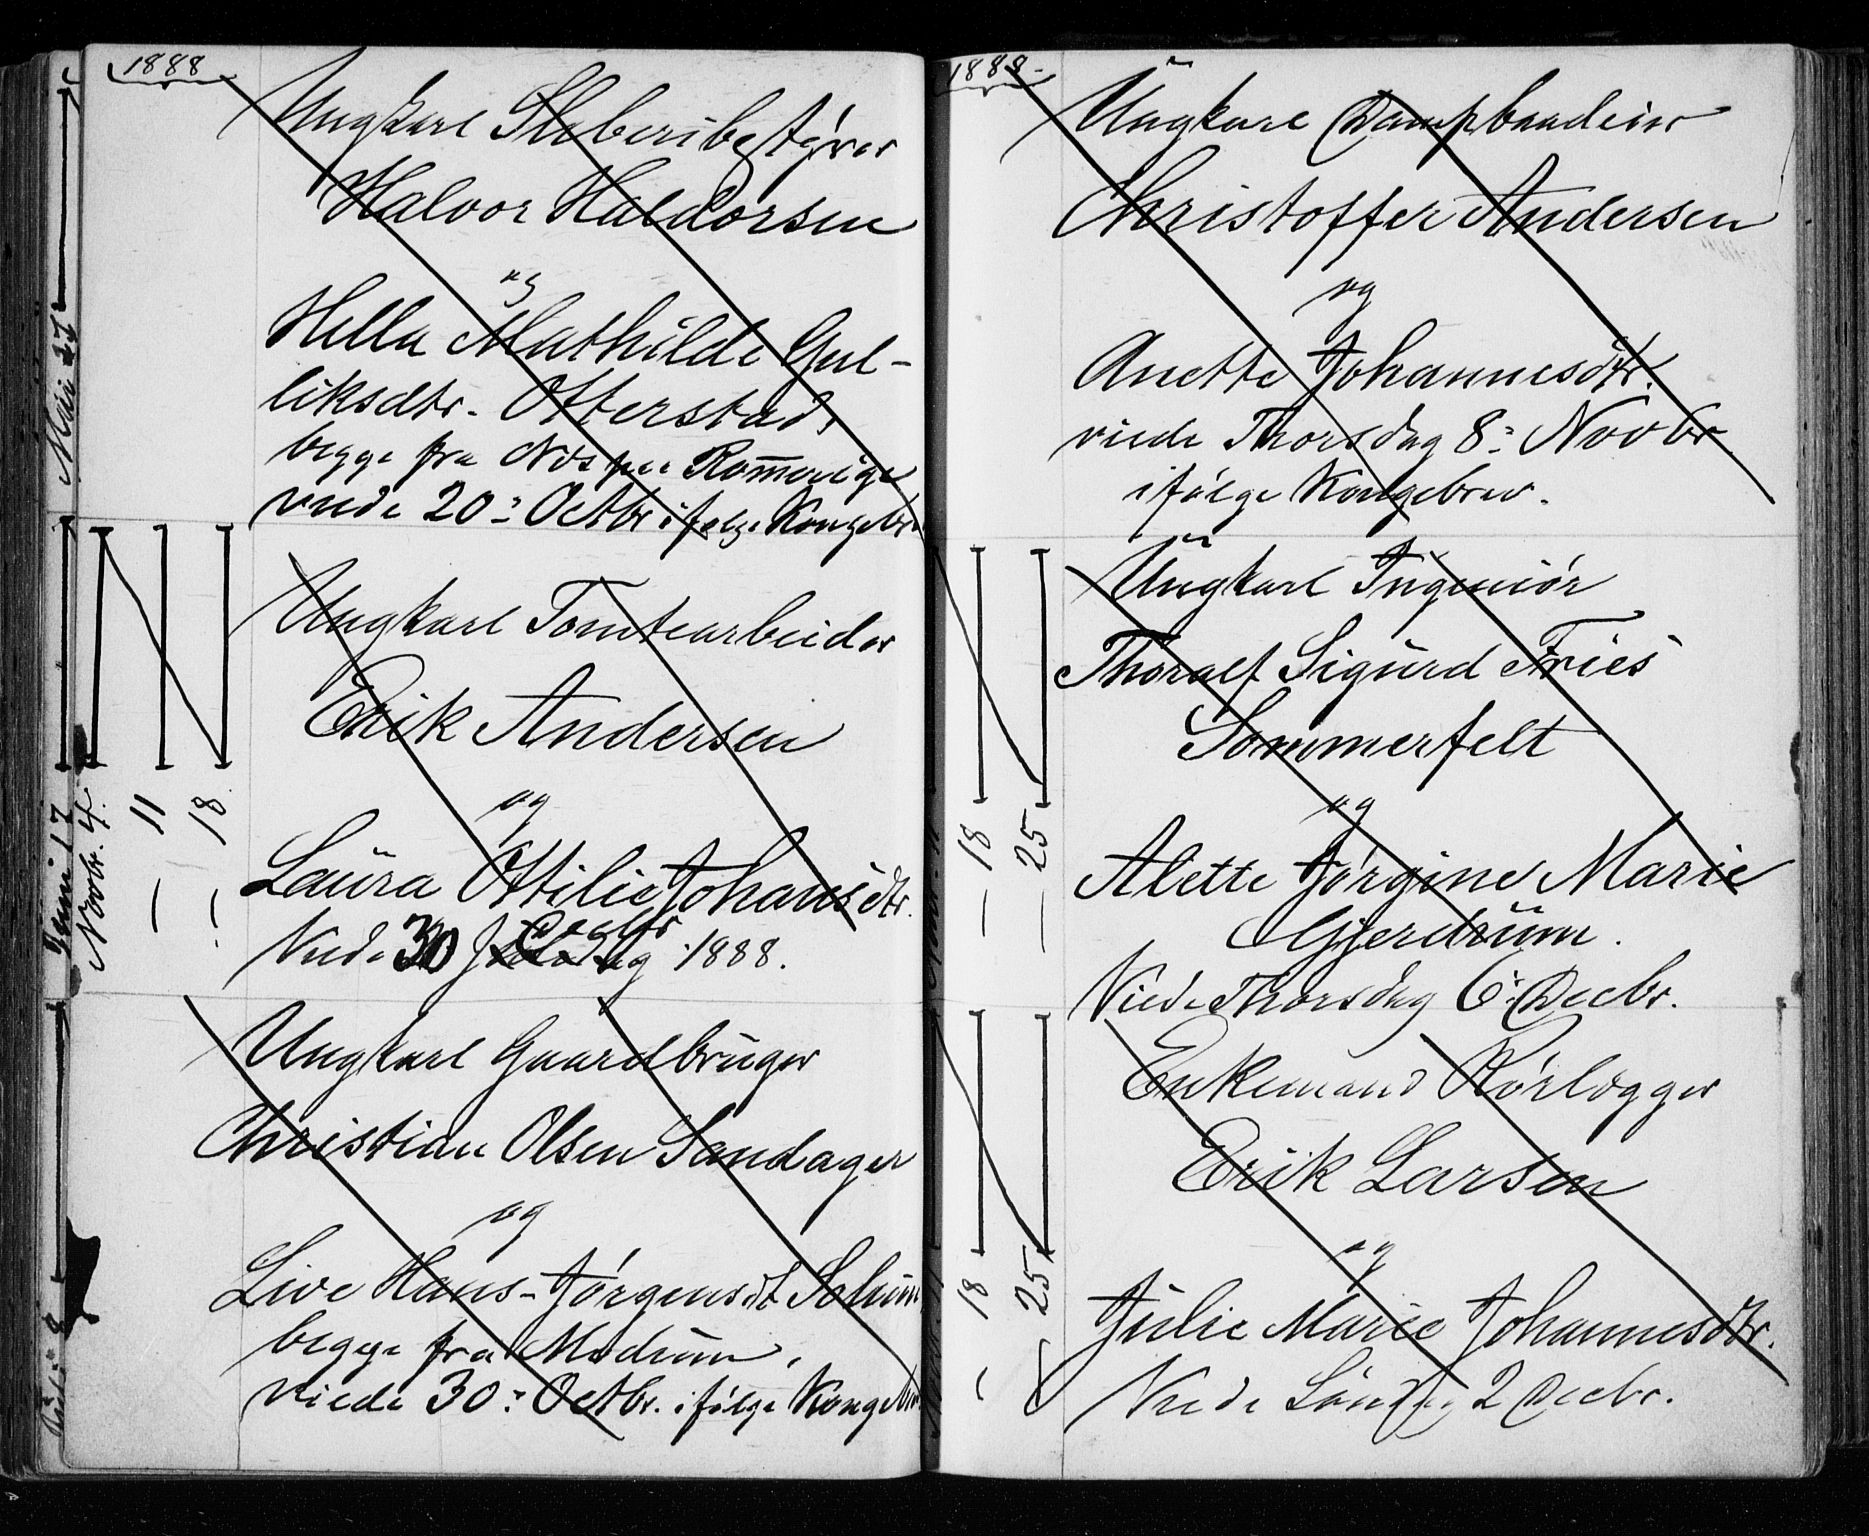 1888
Ungkarl Sliberibestyrer
Halvor Haldorsen
og
Hella Mathilde Gul-
liksdtr. Otterstad,
begge fra Næs paa Romerige
viede 20de Octbr ifølge Kongebr.
Novbr. 4.
— 11
— 18
Ungkarl Tomtearbeider
Erik Andersen
og
Laura Ottilie Johansdtr.
Viede 30 Decbr 1888.
Ungkarl Gaardbruger
Christian Olsen Sandager
og
Live Hans-Jørgensdt
begge fra Modum,
viede 30: Octbr. ifølge Kongebr.
Mai 27
Juni 17
Juli 8
1888
Ungkarl Dampbaadeier
Christoffer Andersen
og
Anette Johannesdtr.
viede Thorsdag 8: Novbr
ifølge Kongebrev.
— 18
— 25
Ungkarl Ingeniör
Thoralf Sigurd Fries
Sommerfelt
og
Alette Jørgine Marie
Gjerdrum.
Viede Thorsdag 6: Decbr.
— 18
— 25
Enkemand Rørlægger
Erik Larsen
og
Julie Marie Johannesdtr.
Viede Søndag 2 Decbr.